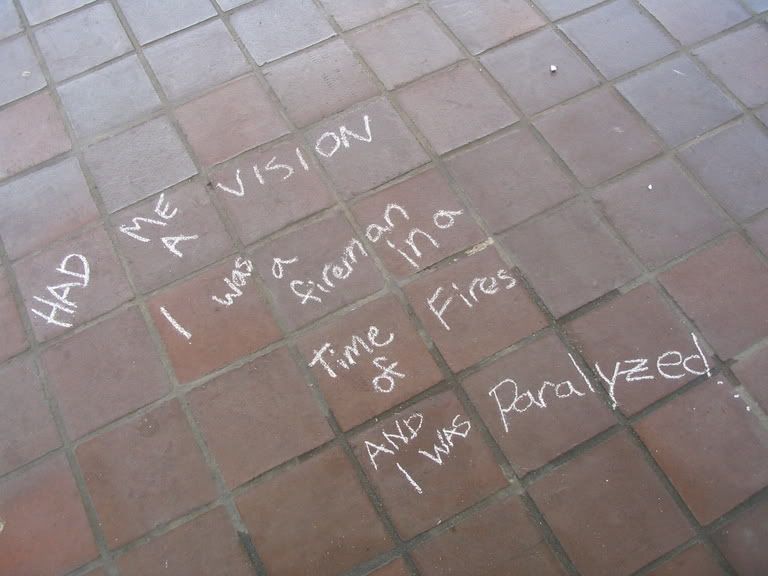 HAD ME A VISION
I was a fireman in a
Time of Fires
AND I WAS Paralyzed...